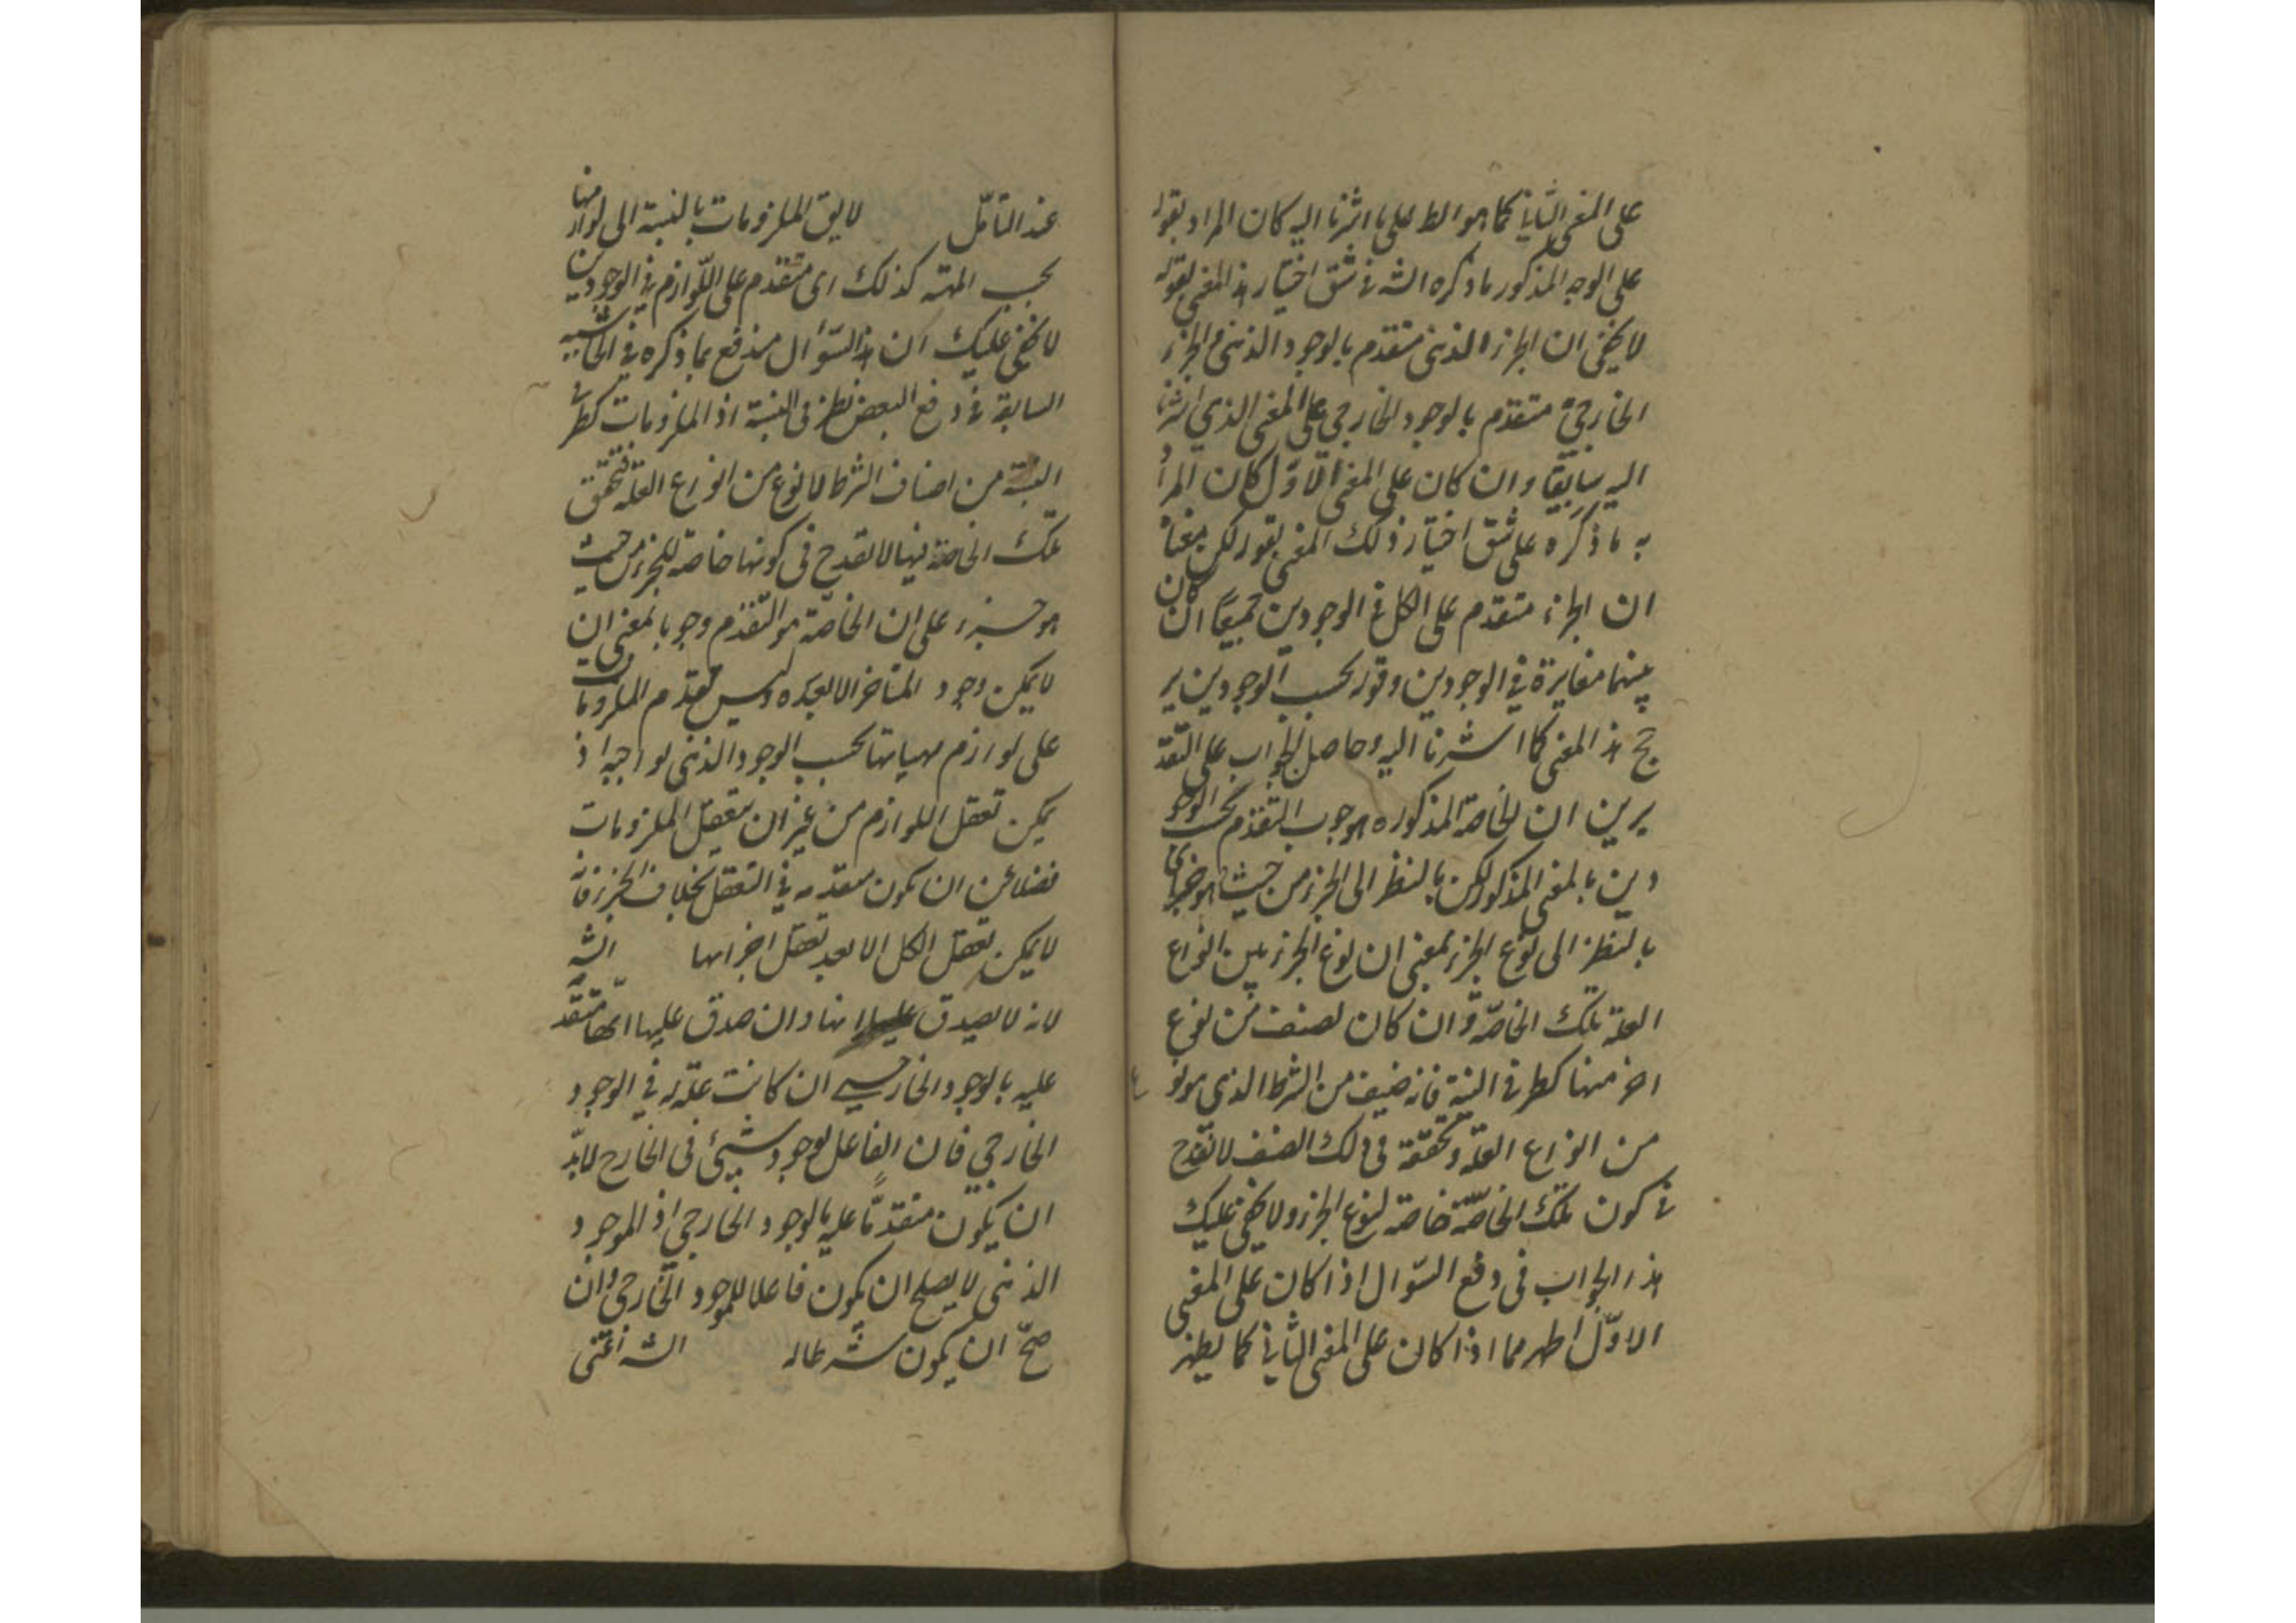 على المعنى الثاني كما هو الظ على ما اشرنا اليه كان المراد بقوله
على الوجه المذكور ما ذكره الشه في شق اختيار هذا المعنى بقوله
لا يخفى ان الجزء الذهنى متقدم بالوجود الذهنى والجزء
الخارجي متقدم بالوجود الخارجي على المعنى الذي اشرنا
اليه سابقا وان كان على المعنى الاول كان المرا
به ما ذكره على شق اختيار ذلك المعنى بقوله لكن معناه
ان الجزء متقدم على الكل في الوجودين جميعا ان كان
بينهما مغايرة في الوجودين وقوله بحسب الوجودين ير
جح هذا المعنى كما اشرنا اليه وحاصل الجواب على التقد
يرين ان الخاصة المذكوره هو وجوب التقدم بحسب الوجو
دين بالمعنى المذكور لكن بالنظر الى الجزء من حيث هو جزء اى
بالنظر الى نوع الجزء بمعنى ان لنوع الجزء من بين انواع
العلة تلك الخاصة وان كان لصنف من نوع
اخر منها كطرفي النسبة فانه صنف من الشرط الذي هو نو
من انواع العلة وتحققه في ذلك الصنف لا تقدح
في كون تلك الخاصة خاصة لنوع الجزء ولا يخفى عليك
هذا الجواب في دفع السؤال اذا كان على المعنى
الاول اظهر مما اذا كان على المعنى الثاني كما يظهر
عند التأمل لا يق الملزومات بالنسبة الى لوازمها
بحسب المهية كذلك اى متقدم على اللوازم في الوجودين
لا يخفى عليك ان هذا السؤال مندفع بما ذكره في الحاشية
السابقة في دفع البعض بطرفى النسبة اذ الملزومات كطرفي
النسبة من اصناف الشرط لا نوع من انواع العلة فتحقق
تلك الخاصة فيها لا تقدح في كونها خاصة للجزء من حيث
هو جزء على ان الخاصة هو التقدم وجوبا بمعنى ان
لا يمكن وجود المتاخر الا بعده وليس تقدم الملزومات
على لوازم مهياتها بحسب الوجود الذهنى بواجب اذ
يمكن تعقل اللوازم من غير ان يتعقل الملزومات
فضلا عن ان يكون متقدمه في التعقل بخلاف الجزء فانه
لا يمكن تعقل الكل الا بعد تعقل اجزائها الشه
لانه لا يصدق عليها انها وان صدق عليها انها متقد
عليه بالوجود الخارجي ان كانت علة له في الوجود
الخارجي فان الفاعل لوجود شيئ في الخارج لا بد
ان يكون متقدما عليه بالوجود الخارجي اذ الموجود
الذهنى لا يصلح ان يكون فاعلا للموجود الخارجي وان
صح ان يكون شرطا له الشه اعنى